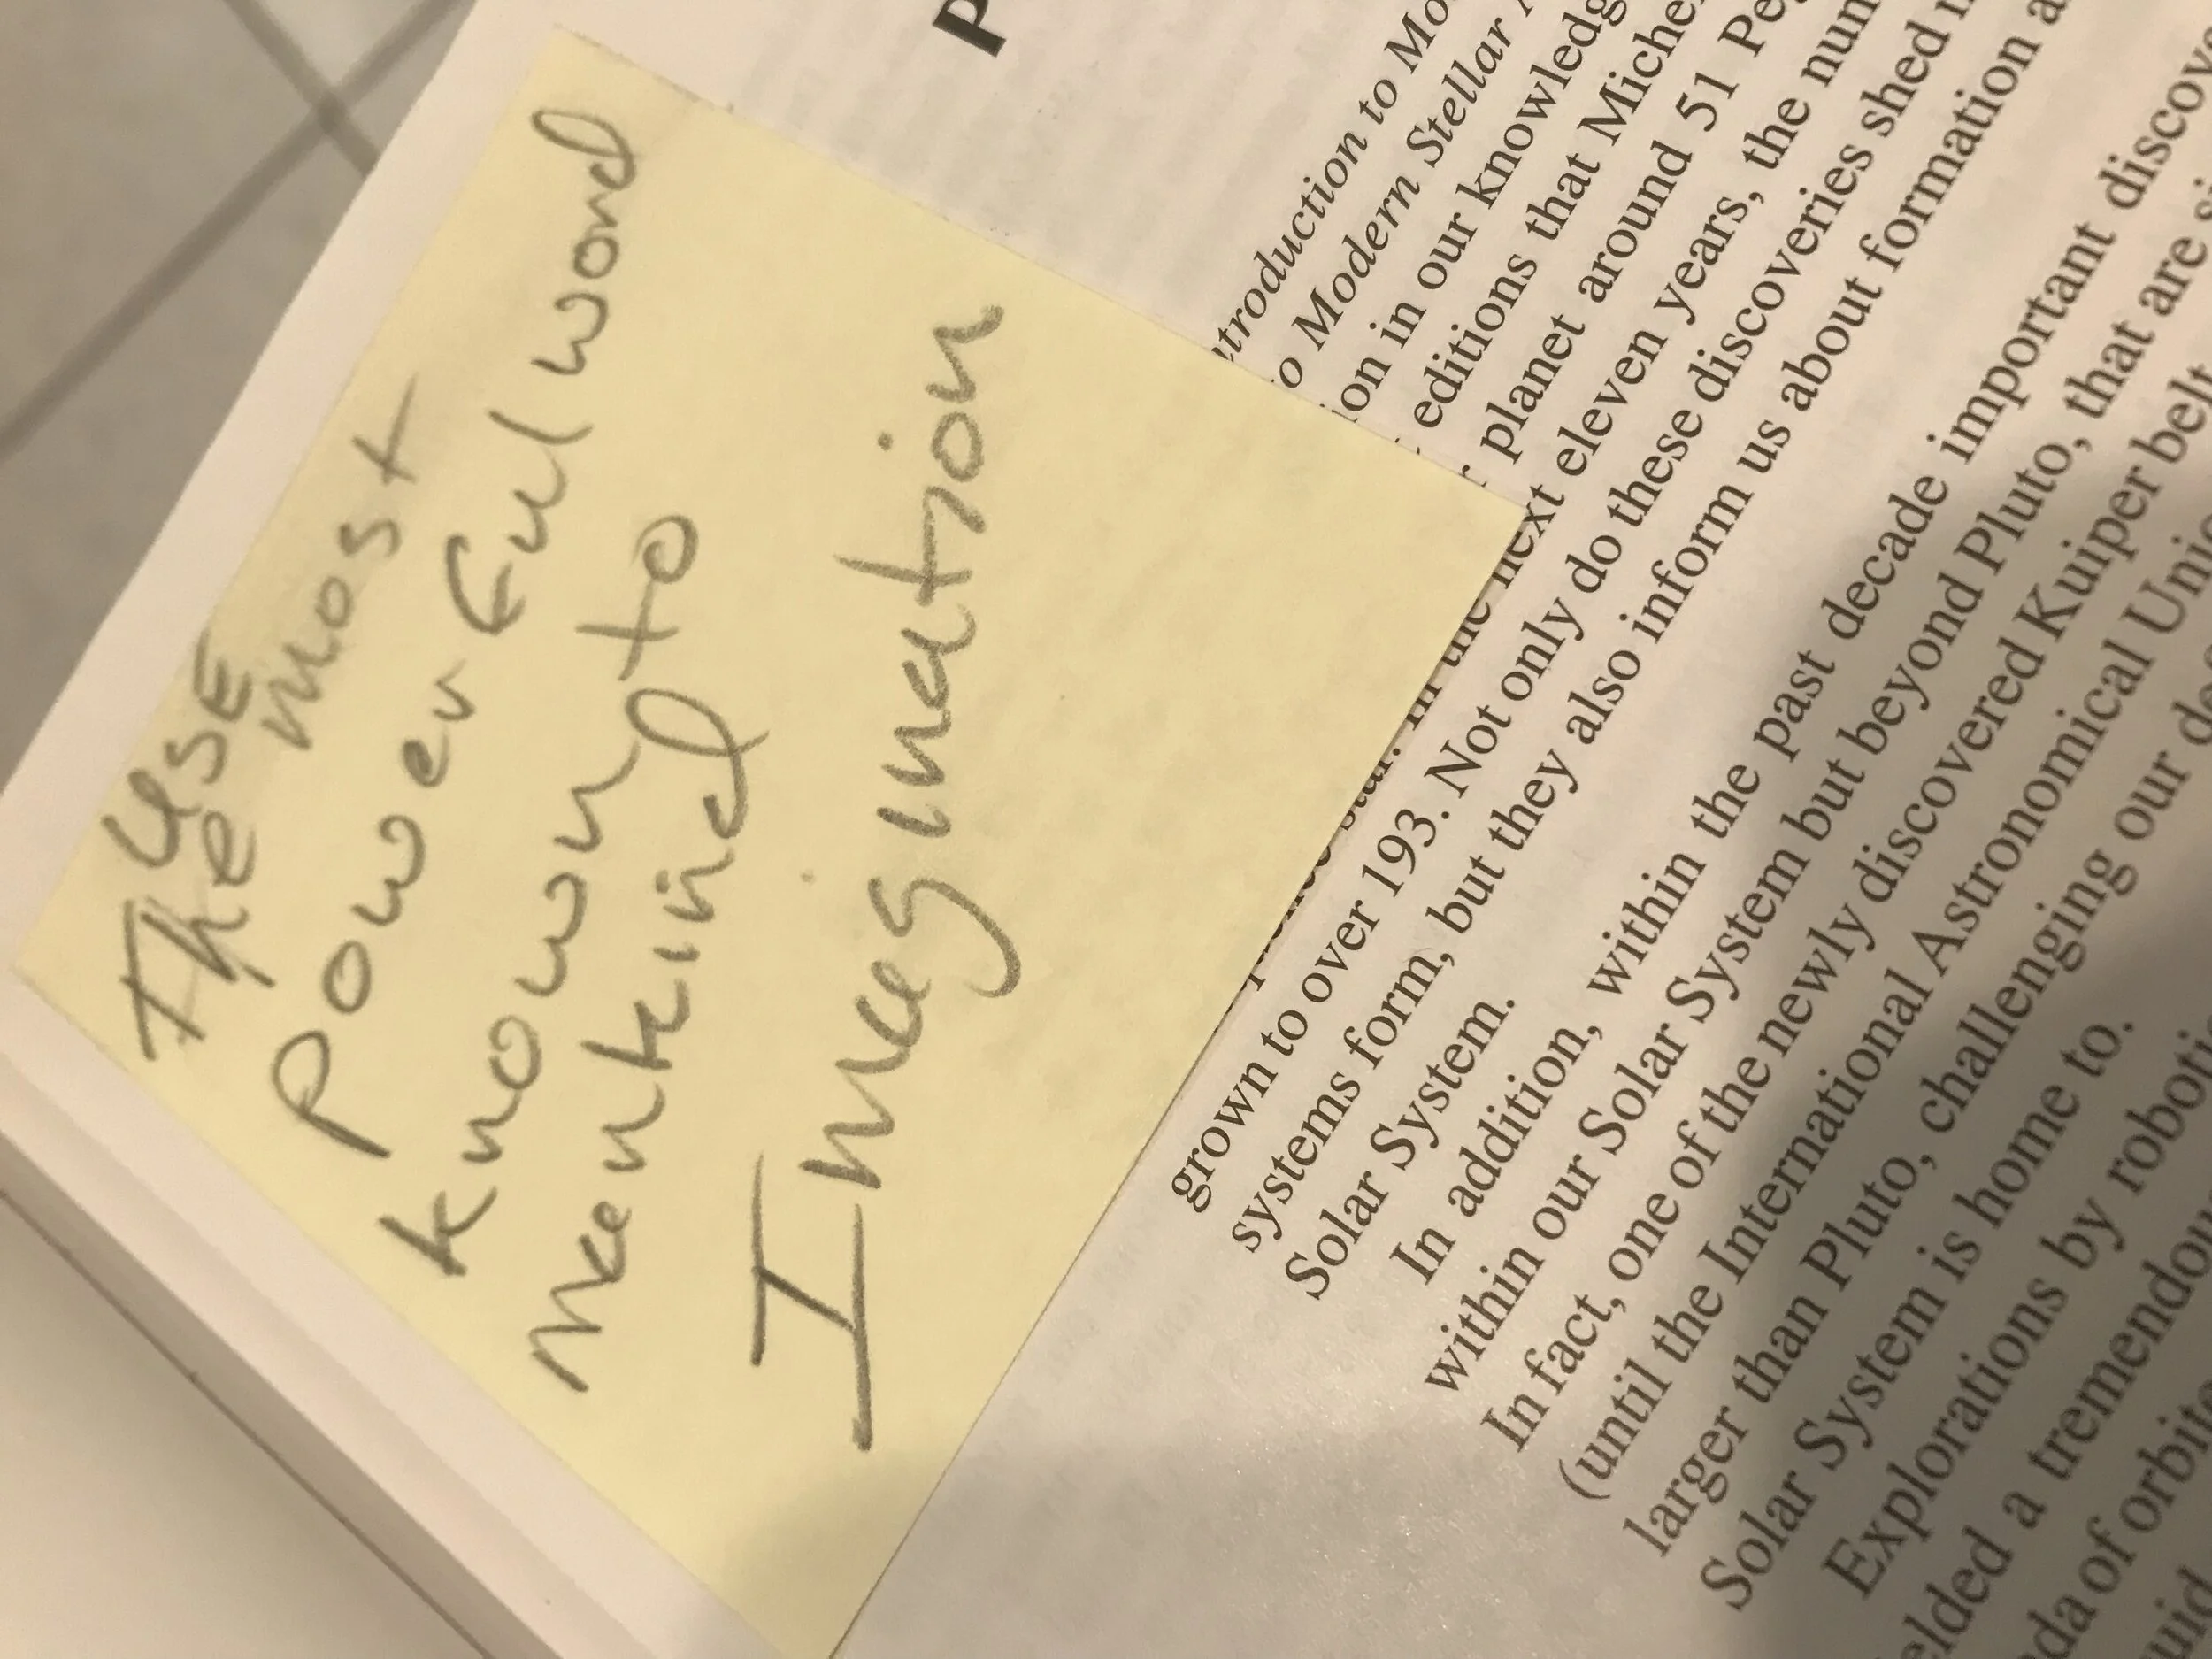 USE
The most
powerful word
known to
mankind
Imagination
P
troduction to Mo
o Modern Stellar A
ion in our knowledg
editions that Miche
r planet around 51 Pe
In the next eleven years, the num
grown to over 193. Not only do these discoveries shed
systems form, but they also inform us about formation a
Solar System.
In addition, within the past decade important discov
within our Solar System but beyond Pluto, that are si
In fact, one of the newly discovered Kuiper belt
(until the International Astronomical Unio
larger than Pluto, challenging our de
Solar System is home to.
Explorations by roboti
elded a tremendou
da of orbite
uid